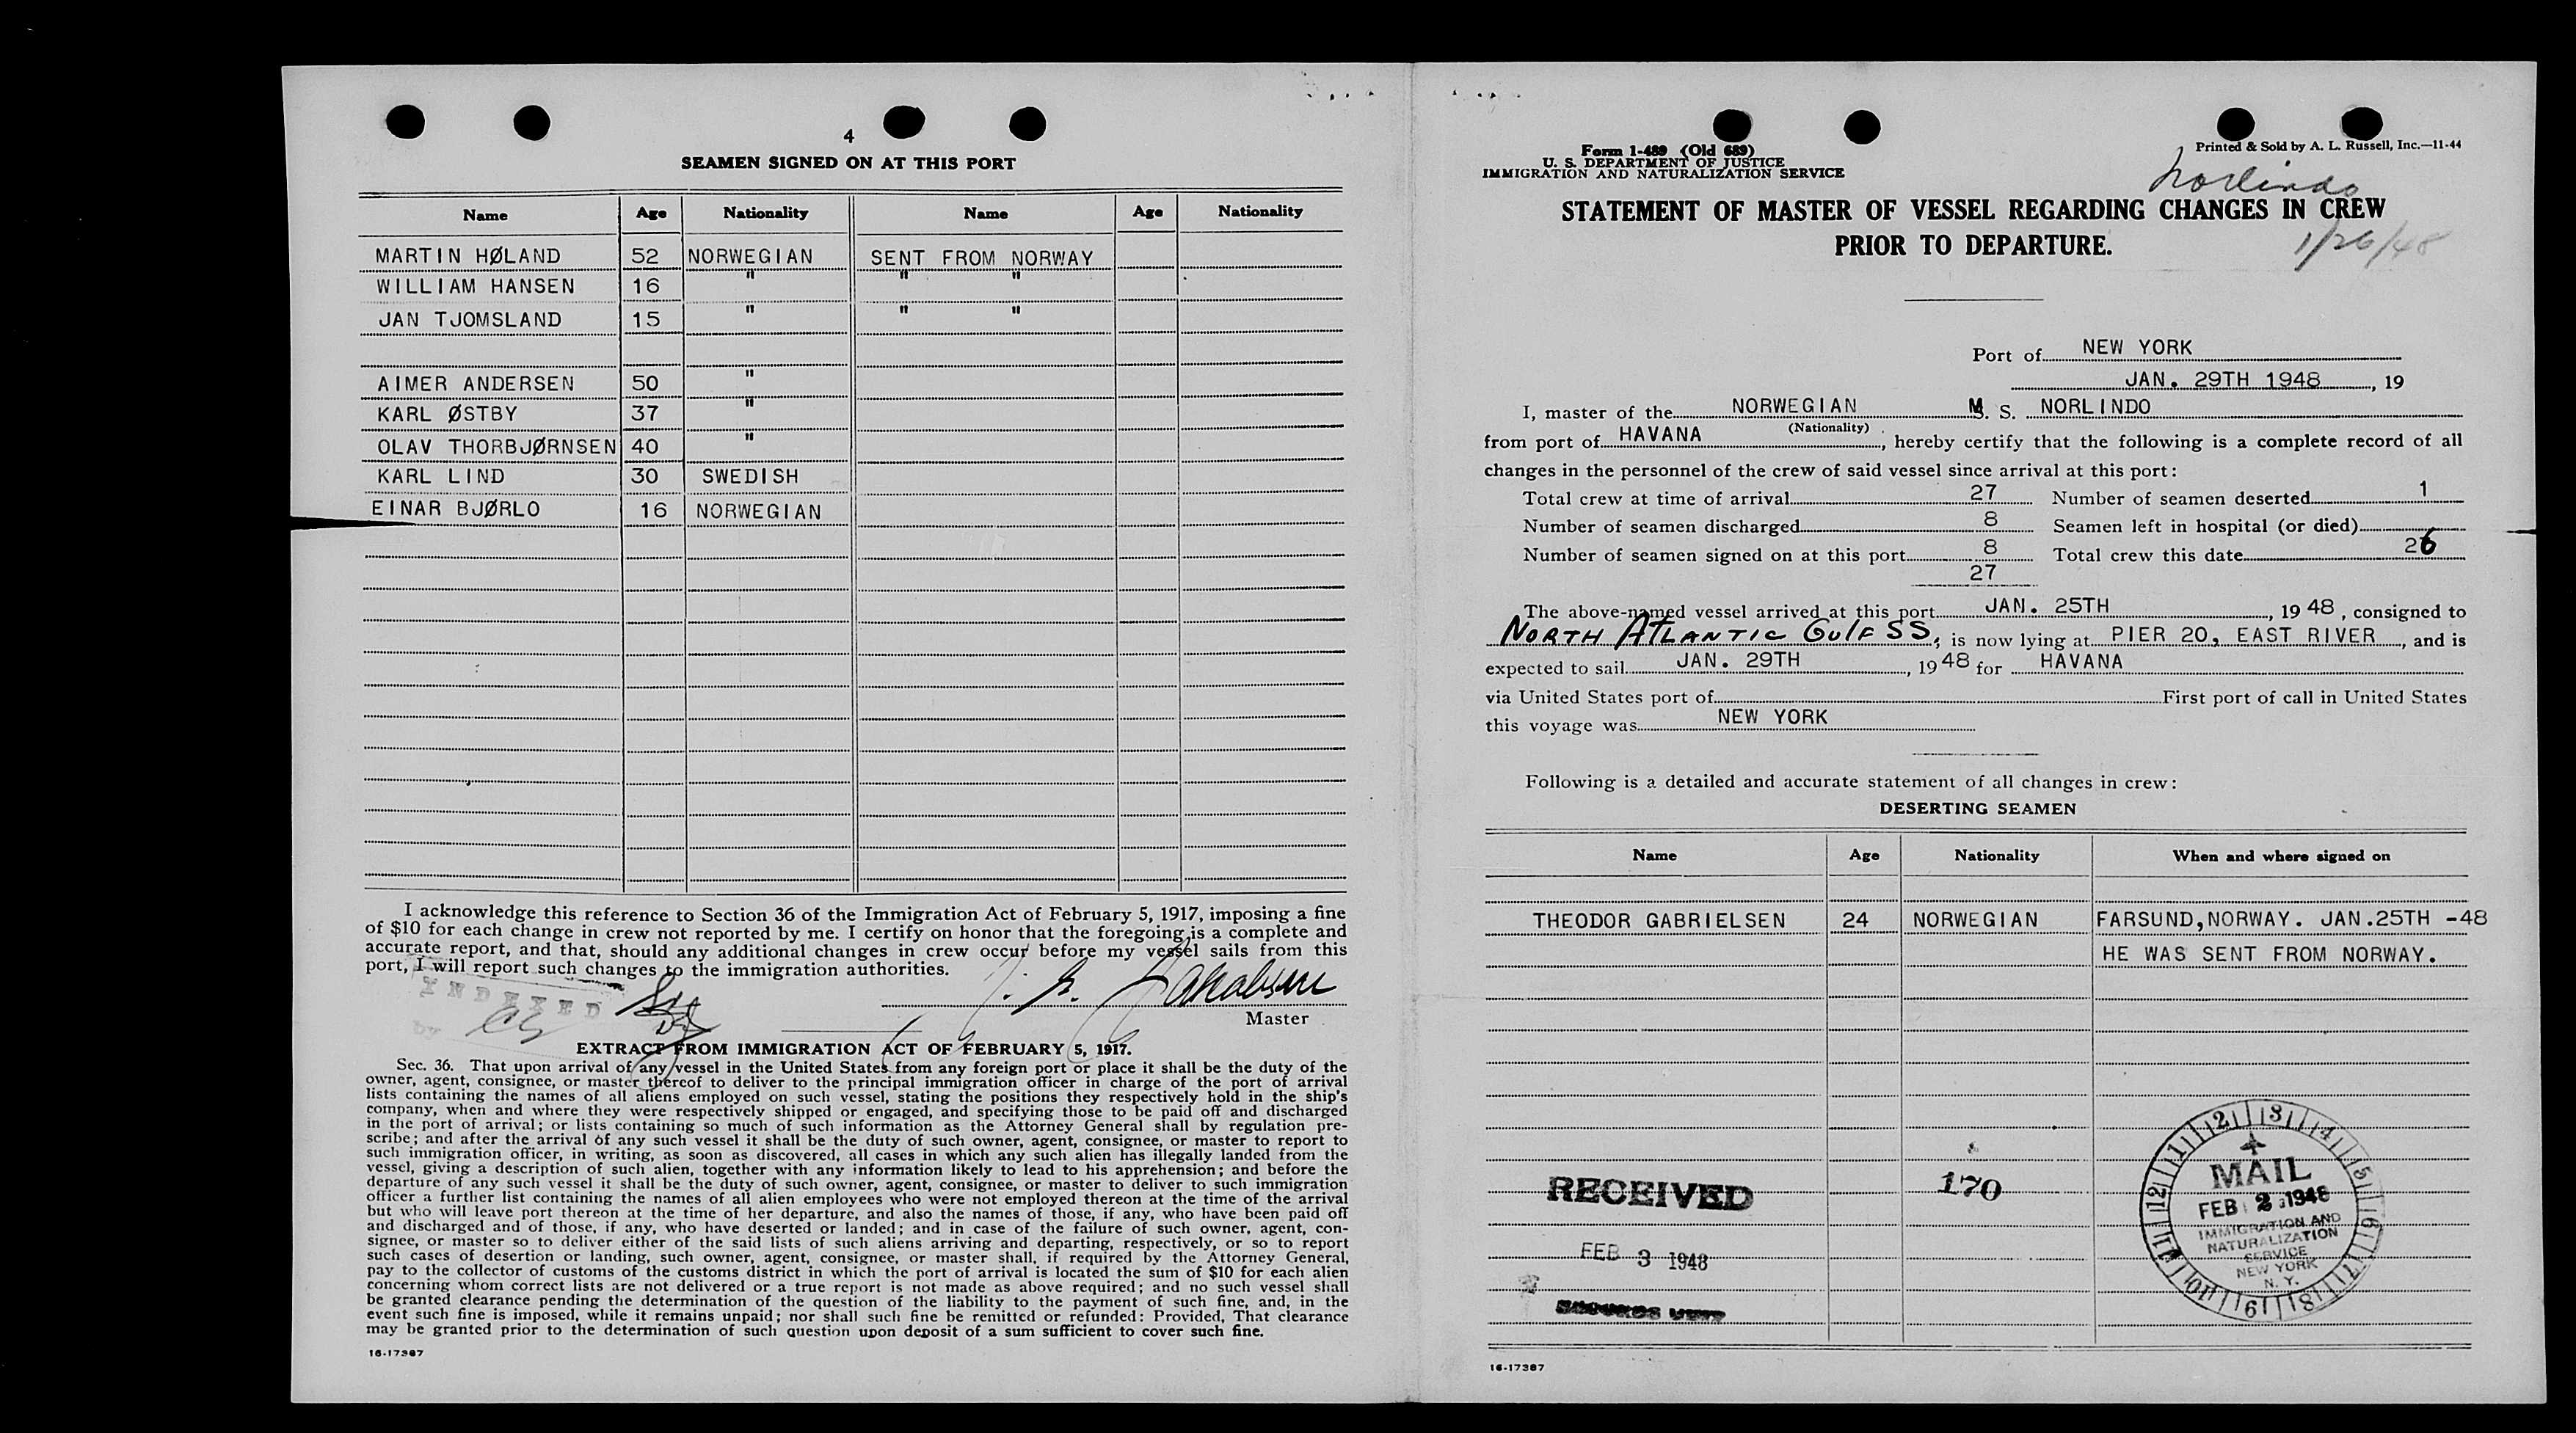 4
SEAMEN SIGNED ON AT THIS PORT
Name Age Nationality Name Age Nationality
MARTIN HØLAND 52 NORWEGIAN SENT FROM NORWAY
WILLIAM HANSEN 16 " " "
JAN TJOMSLAND 15 " " "
AIMER ANDERSEN 50 "
KARL ØSTBY 37 "
OLAV THORBJØRNSEN 40 "
KARL LIND 30 SWEDISH
EINAR BJØRLO 16 NORWEGIAN
I acknowledge this reference to Section 36 of the Immigration Act of February 5, 1917, imposing a fine
of $10 for each change in crew not reported by me. I certify on honor that the foregoing is a complete and
accurate report, and that, should any additional changes in crew occur before my vessel sails from this
port, I will report such changes to the immigration authorities.
INDEXED
by
Jakobsen
Master
EXTRACT FROM IMMIGRATION ACT OF FEBRUARY 5, 1917.
Sec. 36. That upon arrival of any vessel in the United States from any foreign port or place it shall be the duty of the
owner, agent, consignee, or master thereof to deliver to the principal immigration officer in charge of the port of arrival
lists containing the names of all aliens employed on such vessel, stating the positions they respectively hold in the ship's
company, when and where they were respectively shipped or engaged, and specifying those to be paid off and discharged
in the port of arrival; or lists containing so much of such information as the Attorney General shall by regulation pre-
scribe; and after the arrival of any such vessel it shall be the duty of such owner, agent, consignee, or master to report to
such immigration officer, in writing, as soon as discovered, all cases in which any such alien has illegally landed from the
vessel, giving a description of such alien, together with any information likely to lead to his apprehension; and before the
departure of any such vessel it shall be the duty of such owner, agent, consignee, or master to deliver to such immigration
officer a further list containing the names of all alien employees who were not employed thereon at the time of the arrival
but who will leave port thereon at the time of her departure, and also the names of those, if any, who have been paid off
and discharged and of those, if any, who have deserted or landed; and in case of the failure of such owner, agent, con-
signee, or master so to deliver either of the said lists of such aliens arriving and departing, respectively, or so to report
such cases of desertion or landing, such owner, agent, consignee, or master shall, if required by the Attorney General,
pay to the collector of customs of the customs district in which the port of arrival is located the sum of $10 for each alien
concerning whom correct lists are not delivered or a true report is not made as above required; and no such vessel shall
be granted clearance pending the determination of the question of the liability to the payment of such fine, and, in the
event such fine is imposed, while it remains unpaid; nor shall such fine be remitted or refunded: Provided, That clearance
may be granted prior to the determination of such question upon deposit of a sum sufficient to cover such fine.
16-17387
Form I-489 (Old 689)
U. S. DEPARTMENT OF JUSTICE
IMMIGRATION AND NATURALIZATION SERVICE
Printed & Sold by A. L. Russell, Inc.—11-44
Norlindo
STATEMENT OF MASTER OF VESSEL REGARDING CHANGES IN CREW
PRIOR TO DEPARTURE.
1/26/48
Port of NEW YORK
JAN. 29TH 1948, 19
I, master of the NORWEGIAN M. S. NORLINDO
(Nationality)
from port of HAVANA, hereby certify that the following is a complete record of all
changes in the personnel of the crew of said vessel since arrival at this port:
Total crew at time of arrival 27 Number of seamen deserted 1
Number of seamen discharged 8 Seamen left in hospital (or died)
Number of seamen signed on at this port 8 Total crew this date 26
27
The above-named vessel arrived at this port JAN. 25TH, 19 48, consigned to
NORTH ATLANTIC GULF SS, is now lying at PIER 20, EAST RIVER, and is
expected to sail JAN. 29TH, 19 48 for HAVANA
via United States port of First port of call in United States
this voyage was NEW YORK
Following is a detailed and accurate statement of all changes in crew:
DESERTING SEAMEN
Name Age Nationality When and where signed on
THEODOR GABRIELSEN 24 NORWEGIAN FARSUND, NORWAY. JAN.25TH -48
HE WAS SENT FROM NORWAY.
RECEIVED
FEB 3 1948
170
1 2 3 4 5 6 7 8 9 10 11 12
MAIL
FEB 2 1948
IMMIGRATION AND
NATURALIZATION
SERVICE
NEW YORK
N. Y.
16-17387